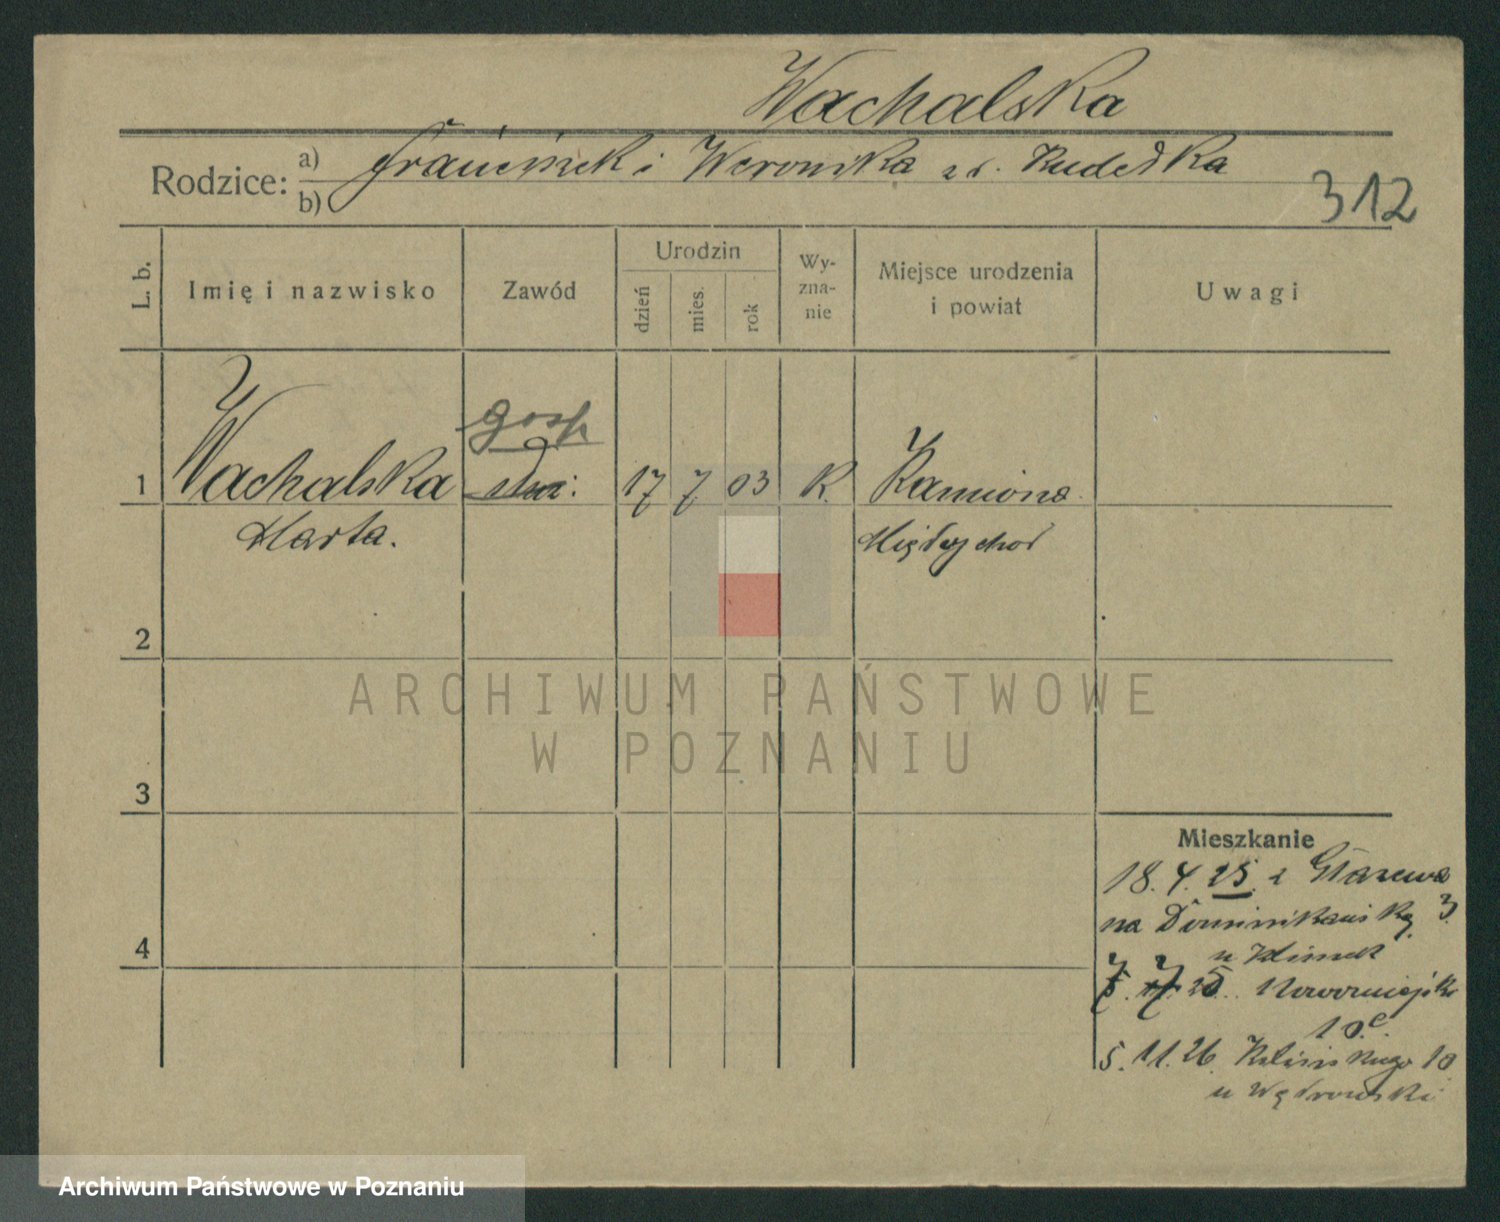 Wachalska
Rodzice: a) Franciszek i Weronika z d.
b)
312
L. b.
Imię i nazwisko
Zawód
Urodzin
dzień
mies.
rok
Wy-
zna-
nie
Miejsce urodzenia
i powiat
Uwagi
gosp
1 Wachalska służ: 17 7 03 K. Kamiona
Marta. Międzychod
2
3
4
ARCHIWUM PAŃSTWOWE
W POZNANIU
Mieszkanie
18. 4. 25. z
na Dominikańską 3.
u Klimek
7. 25. Nowowiejska
10.e
5. 11. 26. 10
u Wędrowski
Archiwum Państwowe w Poznaniu